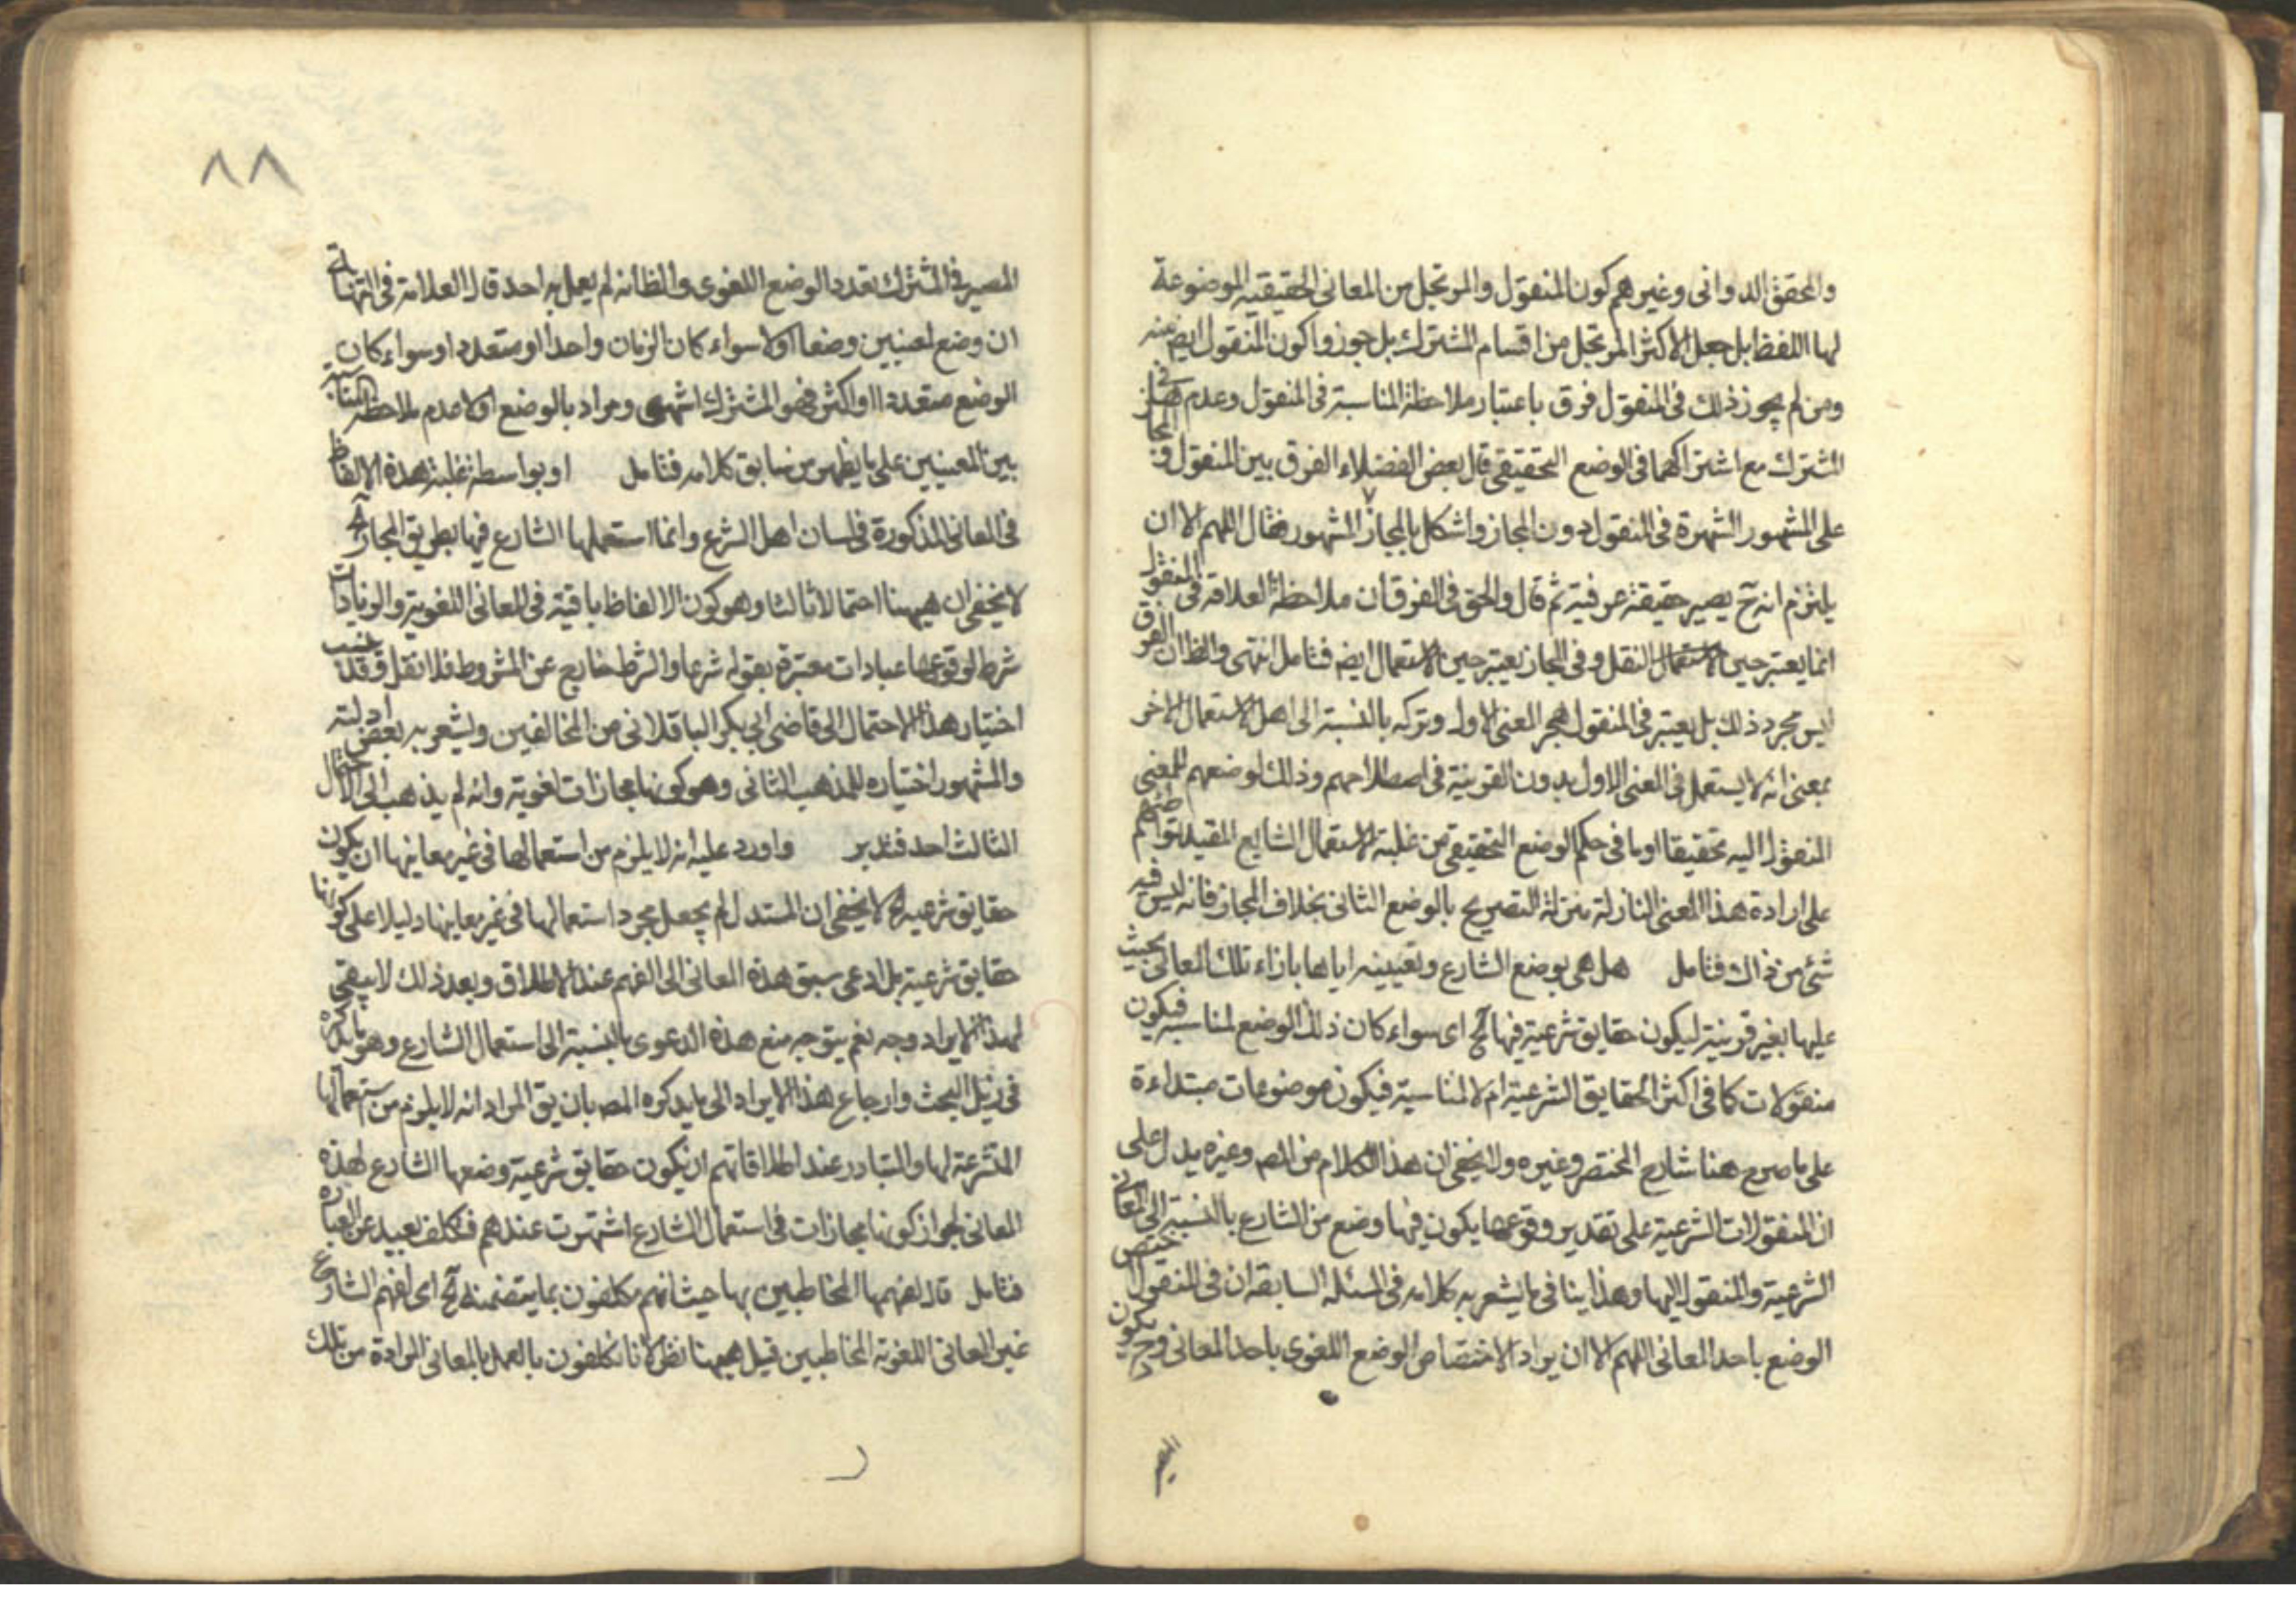 والمحقق الدوانى وغيرهم كون المنقول والمرتجل من المعانى الحقيقية الموضوعة
لها اللفظ بل جعل الاكثر المرتجل من اقسام المشترك بل جوزوا كون المنقول ايض منه
ومن لم يجوز ذلك فى المنقول فرق باعتبار ملاحظة المناسبة فى المنقول وعدمها فى
المشترك مع اشتراكهما فى الوضع التحقيقى قال بعض الفضلاء الفرق بين المنقول والمجاز
على المشهور الشهرة فى المنقول دون المجاز واشكل بالمجاز المشهور فقال اللهم الا ان
يلتزم انه ح يصير حقيقة عرفية ثم قال والحق فى الفرق ان ملاحظة العلاقة فى المنقول
انما يعتبر حين النقل وفى المجاز يعتبر حين الاستعمال ايض فتامل انتهى والظ ان الفرق
ليس مجرد ذلك بل يعتبر فى المنقول هجر المعنى الاول وتركه بالنسبة الى اهل الاستعمال الاخر
بمعنى انه لا يستعمل فى المعنى الاول بدون القرينة فى اصطلاحهم وذلك لوضعهم للمعنى
المنقول اليه تحقيقا او ما فى حكم الوضع التحقيقى من غلبة الاستعمال الشايع المقيد لتواضعهم
على ارادة هذا المعنى النازلة منزلة التصريح بالوضع الثانى بخلاف المجاز فانه ليس فيه
شئ من ذلك فتامل هل هى بوضع الشارع وتعيينه اياها بازاء تلك المعانى بحيث
عليها بغير قرينة ليكون حقايق شرعية فيها آه اى سواء كان ذلك الوضع لمناسبة فيكون
منقولات كما فى اكثر الحقايق الشرعية ام لا لمناسبة فيكون موضوعات مبتداءة
على ما صرح هنا شارح المختصر وغيره ولا يخفى ان هذا الكلام من المص وغيره يدل على
ان المنقولات الشرعية على تقدير وقوعها يكون فيها وضع من الشارع بالنسبة الى المعانى
الشرعية والمنقول اليها وهذا ينافى ما يشعر به كلامه فى المسئلة السابقة ان فى المنقول يختص
الوضع باحد المعانى اللهم الا ان يراد الاختصاص الوضع اللغوى باحد المعانى وح يكون
٨٨
المصير فى المشترك تعدد الوضع اللغوى والظ انه لم يعمل به احد قال العلامة فى النهاية
ان وضع لمعنيين وضعا اولا سواء كان الزمان واحدا او متعددا وسواء كان
الوضع متعددا او اكثر فهو المشترك انتهى ومراد بالوضع اولا عدم ملاحظة المناسبة
بين المعنيين على ما يظهر من سابق كلامه فتامل او بواسطة غلبة هذه الالفاظ
فى المعانى المذكورة فى لسان اهل الشرع وانما استعملها الشارع فيها بطريق المجاز آه
لا يخفى ان هيهنا احتمالا ثالثا وهو كون الالفاظ باقية فى المعانى اللغوية والزيادات
شرط لوقوعها عبادات معتبرة بقوله شرعا والشرط خارج عن المشروط فلا نقل وقد نسب
اختيار هذا الاحتمال الى قاضى ابى بكر الباقلانى من المخالفين ويشعر به بعض ادلته
والمشهور اختياره للمذهب الثانى وهو كونها مجازات لغوية وانه لم يذهب الى الاحتمال
الثالث احد فتدبر واورد عليه انه لا يلزم من استعمالها فى غير معاينها ان يكون
حقايق شرعية آه لا يخفى ان المستدل لم يجعل مجرد استعمالها فى غير معاينها دليلا على كونها
حقايق شرعية بل ادعى سبق هذه المعانى الى الفهم عند الاطلاق وبعد ذلك لا يبقى
لهذا الايراد وجه نعم يتوجه منع هذه الدعوى بالنسبة الى استعمال الشارع وهو ما ذكره
فى ذيل البحث وارجاع هذا الايراد الى ما يذكره المص بان يق المراد انه لا يلزم من استعمالها
المتشرعة لها والتبادر عند اطلاقاتهم ان يكون حقايق شرعية وضعها الشارع لهذه
المعانى لجواز كونها مجازات فى استعمال الشارع اشتهرت عندهم فتكلف بعيد عن العبارة
فتامل قال لفهمها المخاطبين بها حيث انهم مكلفون بما يتضمنه آه اى لفهم الشارع
غير المعانى اللغوية المخاطبين قيل هيهنا نظر لانا مكلفون بالعمل بالمعانى المرادة من تلك